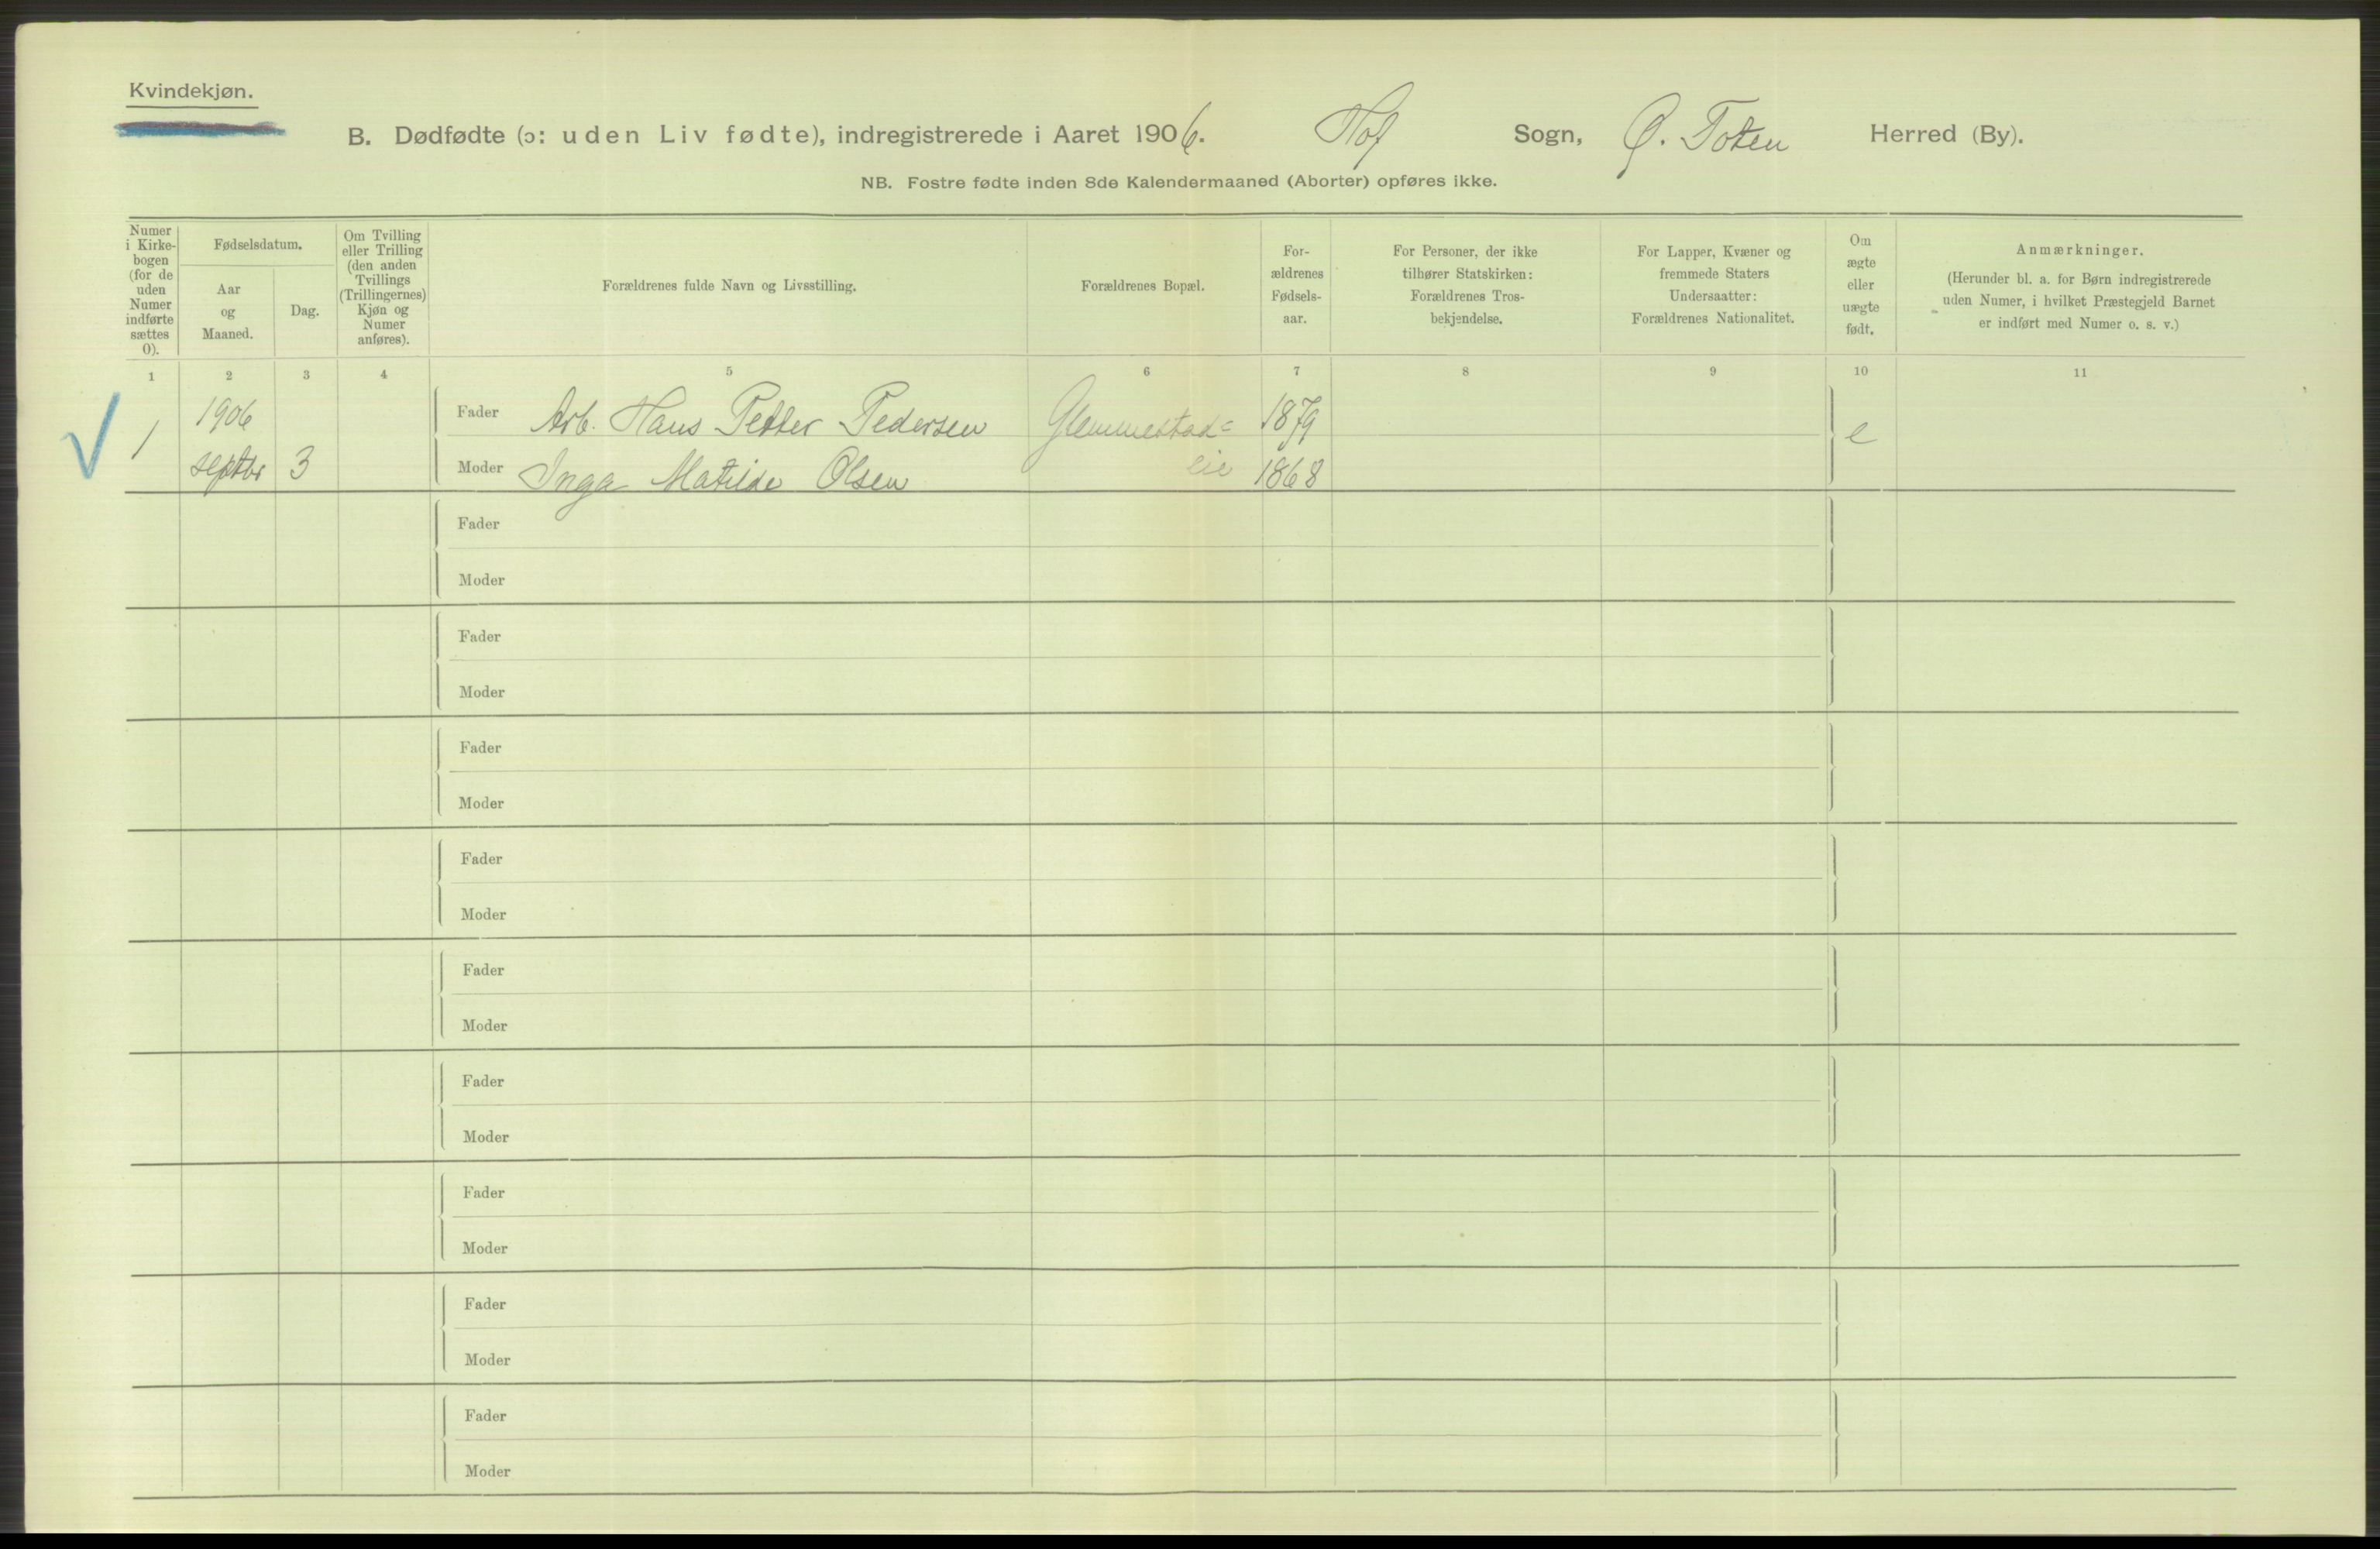 Kvindekjøn.
B. Dødfødte (ɔ: uden Liv fødte), indregistrerede i Aaret 1906. Hof Sogn, Ø. Toten Herred (By).
NB. Fostre fødte inden 8de Kalendermaaned (Aborter) opføres ikke.
Numer
i Kirke-
bogen
(for de
uden
Numer
indførte
sættes
0).
Fødselsdatum.
Aar
og
Maaned.
Dag.
Om Tvilling
eller Trilling
(den anden
Tvillings
(Trillingernes)
Kjøn og
Numer
anføres).
Forældrenes fulde Navn og Livsstilling.
Forældrenes Bopæl.
For-
ældrenes
Fødsels-
aar.
For Personer, der ikke
tilhører Statskirken:
Forældrenes Tros-
bekjendelse.
For Lapper, Kvæner og
fremmede Staters
Undersaatter:
Forældrenes Nationalitet.
Om
ægte
eller
uægte
født.
Anmærkninger.
(Herunder bl. a. for Børn indregistrerede
uden Numer, i hvilket Præstegjeld Barnet
er indført med Numer o. s. v.)
1 2 3 4 5 6 7 8 9 10 11
1906 Fader Arb. Hans Petter Pedersen Glemmestad= 1879
1 e
septbr 3 Moder Inga Matilde Olsen eie 1868
Fader
Moder
Fader
Moder
Fader
Moder
Fader
Moder
Fader
Moder
Fader
Moder
Fader
Moder
Fader
Moder
Fader
Moder